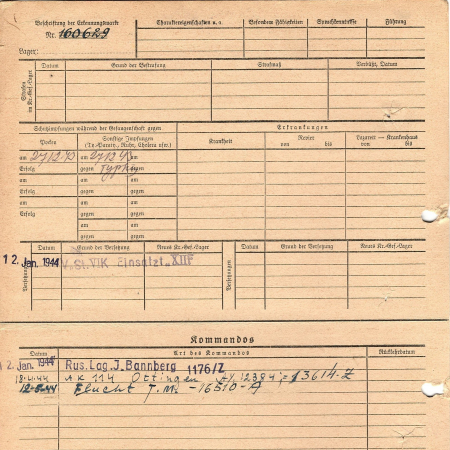 Beschriftung der Erkennungsmarke
Nr. 160629
Lager:
Charaktereigenschaften u. s.
Besondere Fähigkeiten
Sprachkenntnisse
Führung
Strafen im Kr.-Gef.-Lager
Datum
Grund der Bestrafung
Strafmaß
Verbüßt, Datum
Schutzimpfungen während der Gefangenschaft gegen
Erkrankungen
Pocken
Sonstige Impfungen
(Ty.-Paraty., Ruhr, Cholera usw.)
Krankheit
Revier
von bis
Lazarett – Krankenhaus
von bis
am 27.12.43 am 27.12.43 am
Erfolg gegen Typhus gegen
am am am
Erfolg gegen gegen
am am am
Erfolg gegen gegen
am am
gegen gegen
am am
gegen gegen
Versetzungen
Datum
Grund der Versetzung
Neues Kr.-Gef.-Lager
Versetzungen
Datum
Grund der Versetzung
Neues Kr.-Gef.-Lager
12. Jan. 1944 V. St. VIK
Kommandos
Datum
Art des Kommandos
Rückkehrdatum
12. Jan. 1944 Rus. Lag. J. Bannberg 1176/Z
AK 114 Ottingen 13614-Z
12-5-44 Flucht T.M. -16510-A